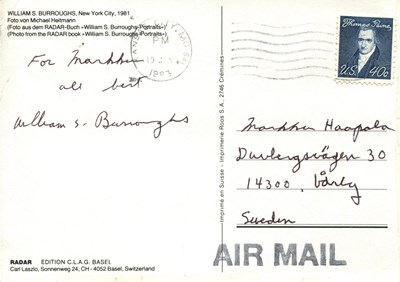 WILLIAM S. BURROUGHS, New York City, 1981
Foto von Michael Heitmann
(Foto aus dem RADAR-Buch «William S. Burroughs-Portraits»)
(Photo from the RADAR book «William S. Burroughs-Portraits»)
For Markku
all best
William S. Burroughs
RADAR EDITION C.L.A.G. BASEL
Carl Laszlo, Sonnenweg 24, CH-4052 Basel, Switzerland
Imprimé en Suisse - Imprimerie Roos S.A., 2746 Crémines
PM
Thomas Paine
U.S. 40c
Markku Haapala
Duvbergsvägen 30
14300, Vårby
Sweden
AIR MAIL